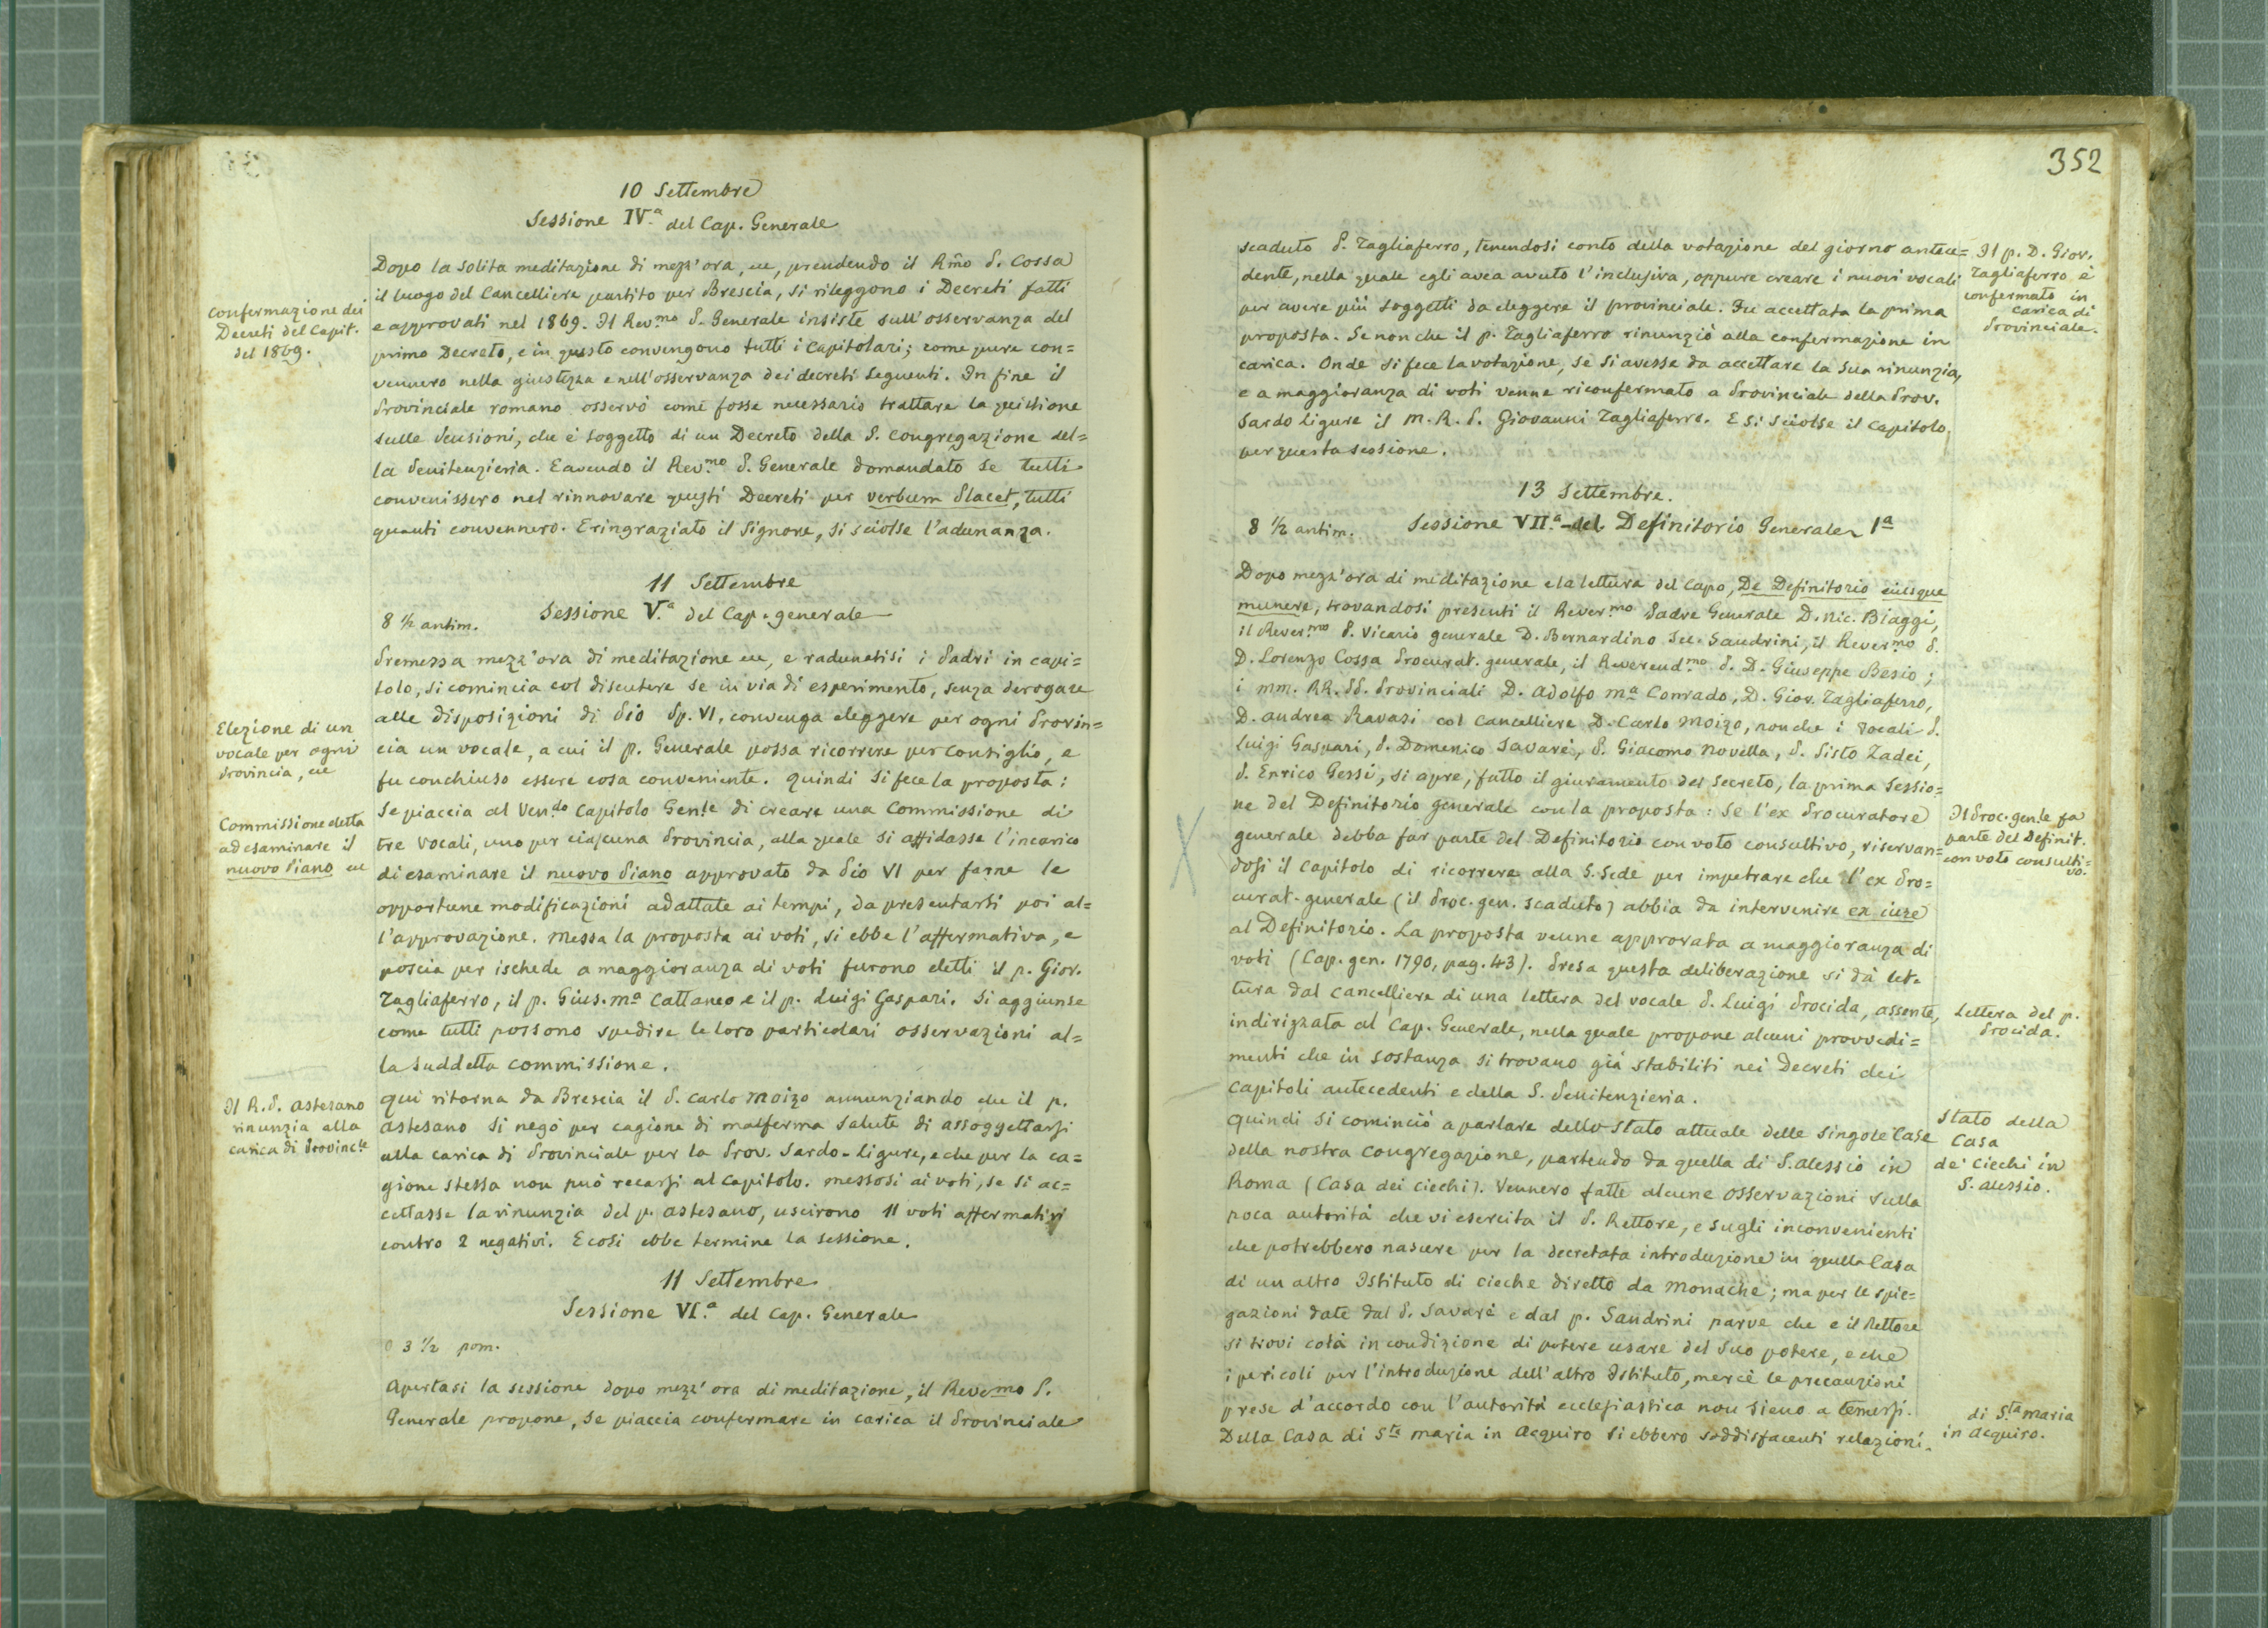 10 Settembre
Sessione IV.a del Cap. Generale
Confermazione dei
Decreti del Capit.
del 1869.
Dopo la solita meditazione di mezz'ora, ec, prendendo il Rmo P. Cossa
il luogo del Cancelliere partito per Brescia, si rileggono i Decreti fatti
e approvati nel 1869. Il Rev.mo P. Generale insiste sull'osservanza del
primo Decreto, e in questo convengono tutti i Capitolari; come pure con=
vennero nella giustezza e nell'osservanza dei decreti seguenti. In fine il
Provinciale romano osservò come fosse necessario trattare la quistione
sulle Pensioni, che è soggetto di un Decreto della S. Congregazione del=
la Penitenzieria. E avendo il Rev.mo P. Generale domandato se tutti
convenissero nel rinnovare questi Decreti per verbum Placet, tutti
quanti convennero. E ringraziato il Signore, si sciolse l'adunanza.
11 Settembre
8 1/2 antim. Sessione V.a del Cap. generale
Premessa mezz'ora di meditazione ec, e radunatisi i Padri in capi=
tolo, si comincia col discutere se in via di esperimento, senza derogare
alle disposizioni di Pio Pp. VI, convenga eleggere per ogni Provin=
cia un vocale, a cui il p. Generale possa ricorrere per consiglio, e
fu conchiuso essere cosa conveniente. Quindi si fece la proposta:
Se piaccia al Ven.do Capitolo Gen.le di creare una Commissione di
tre Vocali, uno per ciascuna Provincia, alla quale si affidasse l'incarico
di esaminare il nuovo Piano approvato da Pio VI per farne le
opportune modificazioni adattate ai tempi, da presentarsi poi al=
l'approvazione. Messa la proposta ai voti, si ebbe l'affermativa, e
poscia per ischede a maggioranza di voti furono eletti il p. Giov.
Tagliaferro, il p. Gius. Ma Cattaneo e il p. Luigi Gaspari. Si aggiunse
come tutti possono spedire le loro particolari osservazioni al=
la suddetta commissione.
Elezione di un
vocale per ogni
Provincia, ec
Commissione eletta
ad esaminare il
nuovo Piano ec
Il R. P. Astesano
rinunzia alla
carica di Provinc.le
Qui ritorna da Brescia il P. Carlo Moizo annunziando che il p.
Astesano si negò per cagione di malferma salute di assoggettarsi
alla carica di Provinciale per la Prov. Sardo-ligure, e che per la ca=
gione stessa non può recarsi al Capitolo. Messosi ai voti, se si ac=
cettasse la rinunzia del p. Astesano, uscirono 11 voti affermativi
contro 2 negativi. E così ebbe termine la sessione.
11 Settembre
Sessione VI.a del Cap. Generale
3 1/2 pom.
Apertasi la sessione dopo mezz'ora di meditazione, il Revemo P.
Generale propone, se piaccia confermare in carica il Provinciale
352
scaduto P. Tagliaferro, tenendosi conto della votazione del giorno antece=
dente, nella quale egli avea avuto l'inclusiva, oppure creare i nuovi vocali
per avere più soggetti da eleggere il provinciale. Fu accettata la prima
proposta. Se non che il p. Tagliaferro rinunziò alla confermazione in
carica. Onde si fece la votazione, se si avesse da accettare la sua rinunzia,
e a maggioranza di voti venne riconfermato a Provinciale della Prov.
Sardo ligure il M. R. P. Giovanni Tagliaferro. E si sciolse il Capitolo
per questa sessione.
Il p. D. Giov.
Tagliaferro è
confermato in
carica di
Provinciale.
13 Settembre.
8 1/2 antim. Sessione VII.a del Definitorio Generale 1a
Dopo mezz'ora di meditazione e la lettura del Capo, De Definitorio eiusque
munere, trovandosi presenti il Rever.mo Padre Generale D. Nic. Biaggi,
il Rever.mo P. Vicario generale D. Bernardino Sec. Sandrini, il Rever.mo P.
D. Lorenzo Cossa Procurat. generale, il Reverend.mo P. D. Giuseppe Besio;
i MM. RR. PP. Provinciali D. Adolfo Ma Conrado, D. Giov. Tagliaferro,
D. Andrea Ravasi col Cancelliere D. Carlo Moizo, nonche i Vocali P.
Luigi Gaspari, P. Domenico Savaré, P. Giacomo Novella, P. Sisto Zadei,
P. Enrico Gessi, si apre, fatto il giuramento del secreto, la prima Sessio=
ne del Definitorio generale con la proposta: Se l'ex Procuratore
generale debba far parte del Definitorio con voto consultivo, riservan=
dosi il Capitolo di ricorrere alla S. Sede per impetrare che l'ex Pro=
curat. generale (il Proc. gen. scaduto) abbia da intervenire ex iure
al Definitorio. La proposta venne approvata a maggioranza di
voti (Cap. gen. 1790, pag. 43). Presa questa deliberazione si dà let=
tura dal cancelliere di una lettera del vocale P. Luigi Procida, assente,
indirizzata al Cap. Generale, nella quale propone alcuni provvedi=
menti che in sostanza si trovano già stabiliti nei Decreti dei
Capitoli antecedenti e della S. Penitenzieria.
Il Proc. gen.le fa
parte del Definit.
con voto consulti=
vo.
Lettera del p.
Procida.
Quindi si cominciò a parlare dello stato attuale delle singole Case
della nostra Congregazione, partendo da quella di S. Alessio in
Roma (Casa dei ciechi). Vennero fatte alcune osservazioni sulla
poca autorità che vi esercita il P. Rettore, e sugli inconvenienti
che potrebbero nascere per la decretata introduzione in quella Casa
di un altro Istituto di cieche diretto da Monache; ma per le spie=
gazioni date dal P. Savaré e dal p. Sandrini parve che e il Rettore
si trovi colà in condizione di potere usare del suo potere, e che
i pericoli per l'introduzione dell'altro Istituto, mercè le precauzioni
prese d'accordo con l'autorità ecclesiastica non sieno a temersi.
Della Casa di Sta Maria in Acquiro si ebbero soddisfacenti relazioni.
Stato della
Casa
de' Ciechi in
S. Alessio.
di S.ta Maria
in Acquiro.